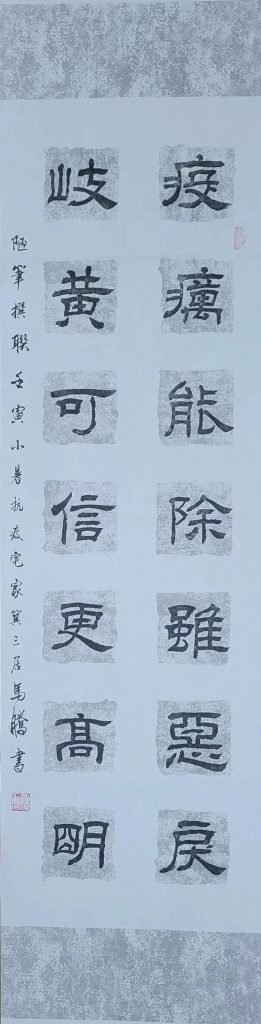 疫癘能除雖惡戾
岐黃可信更高明
陋筆撰聯壬寅小暑抗疫宅家箕三居馬騰書